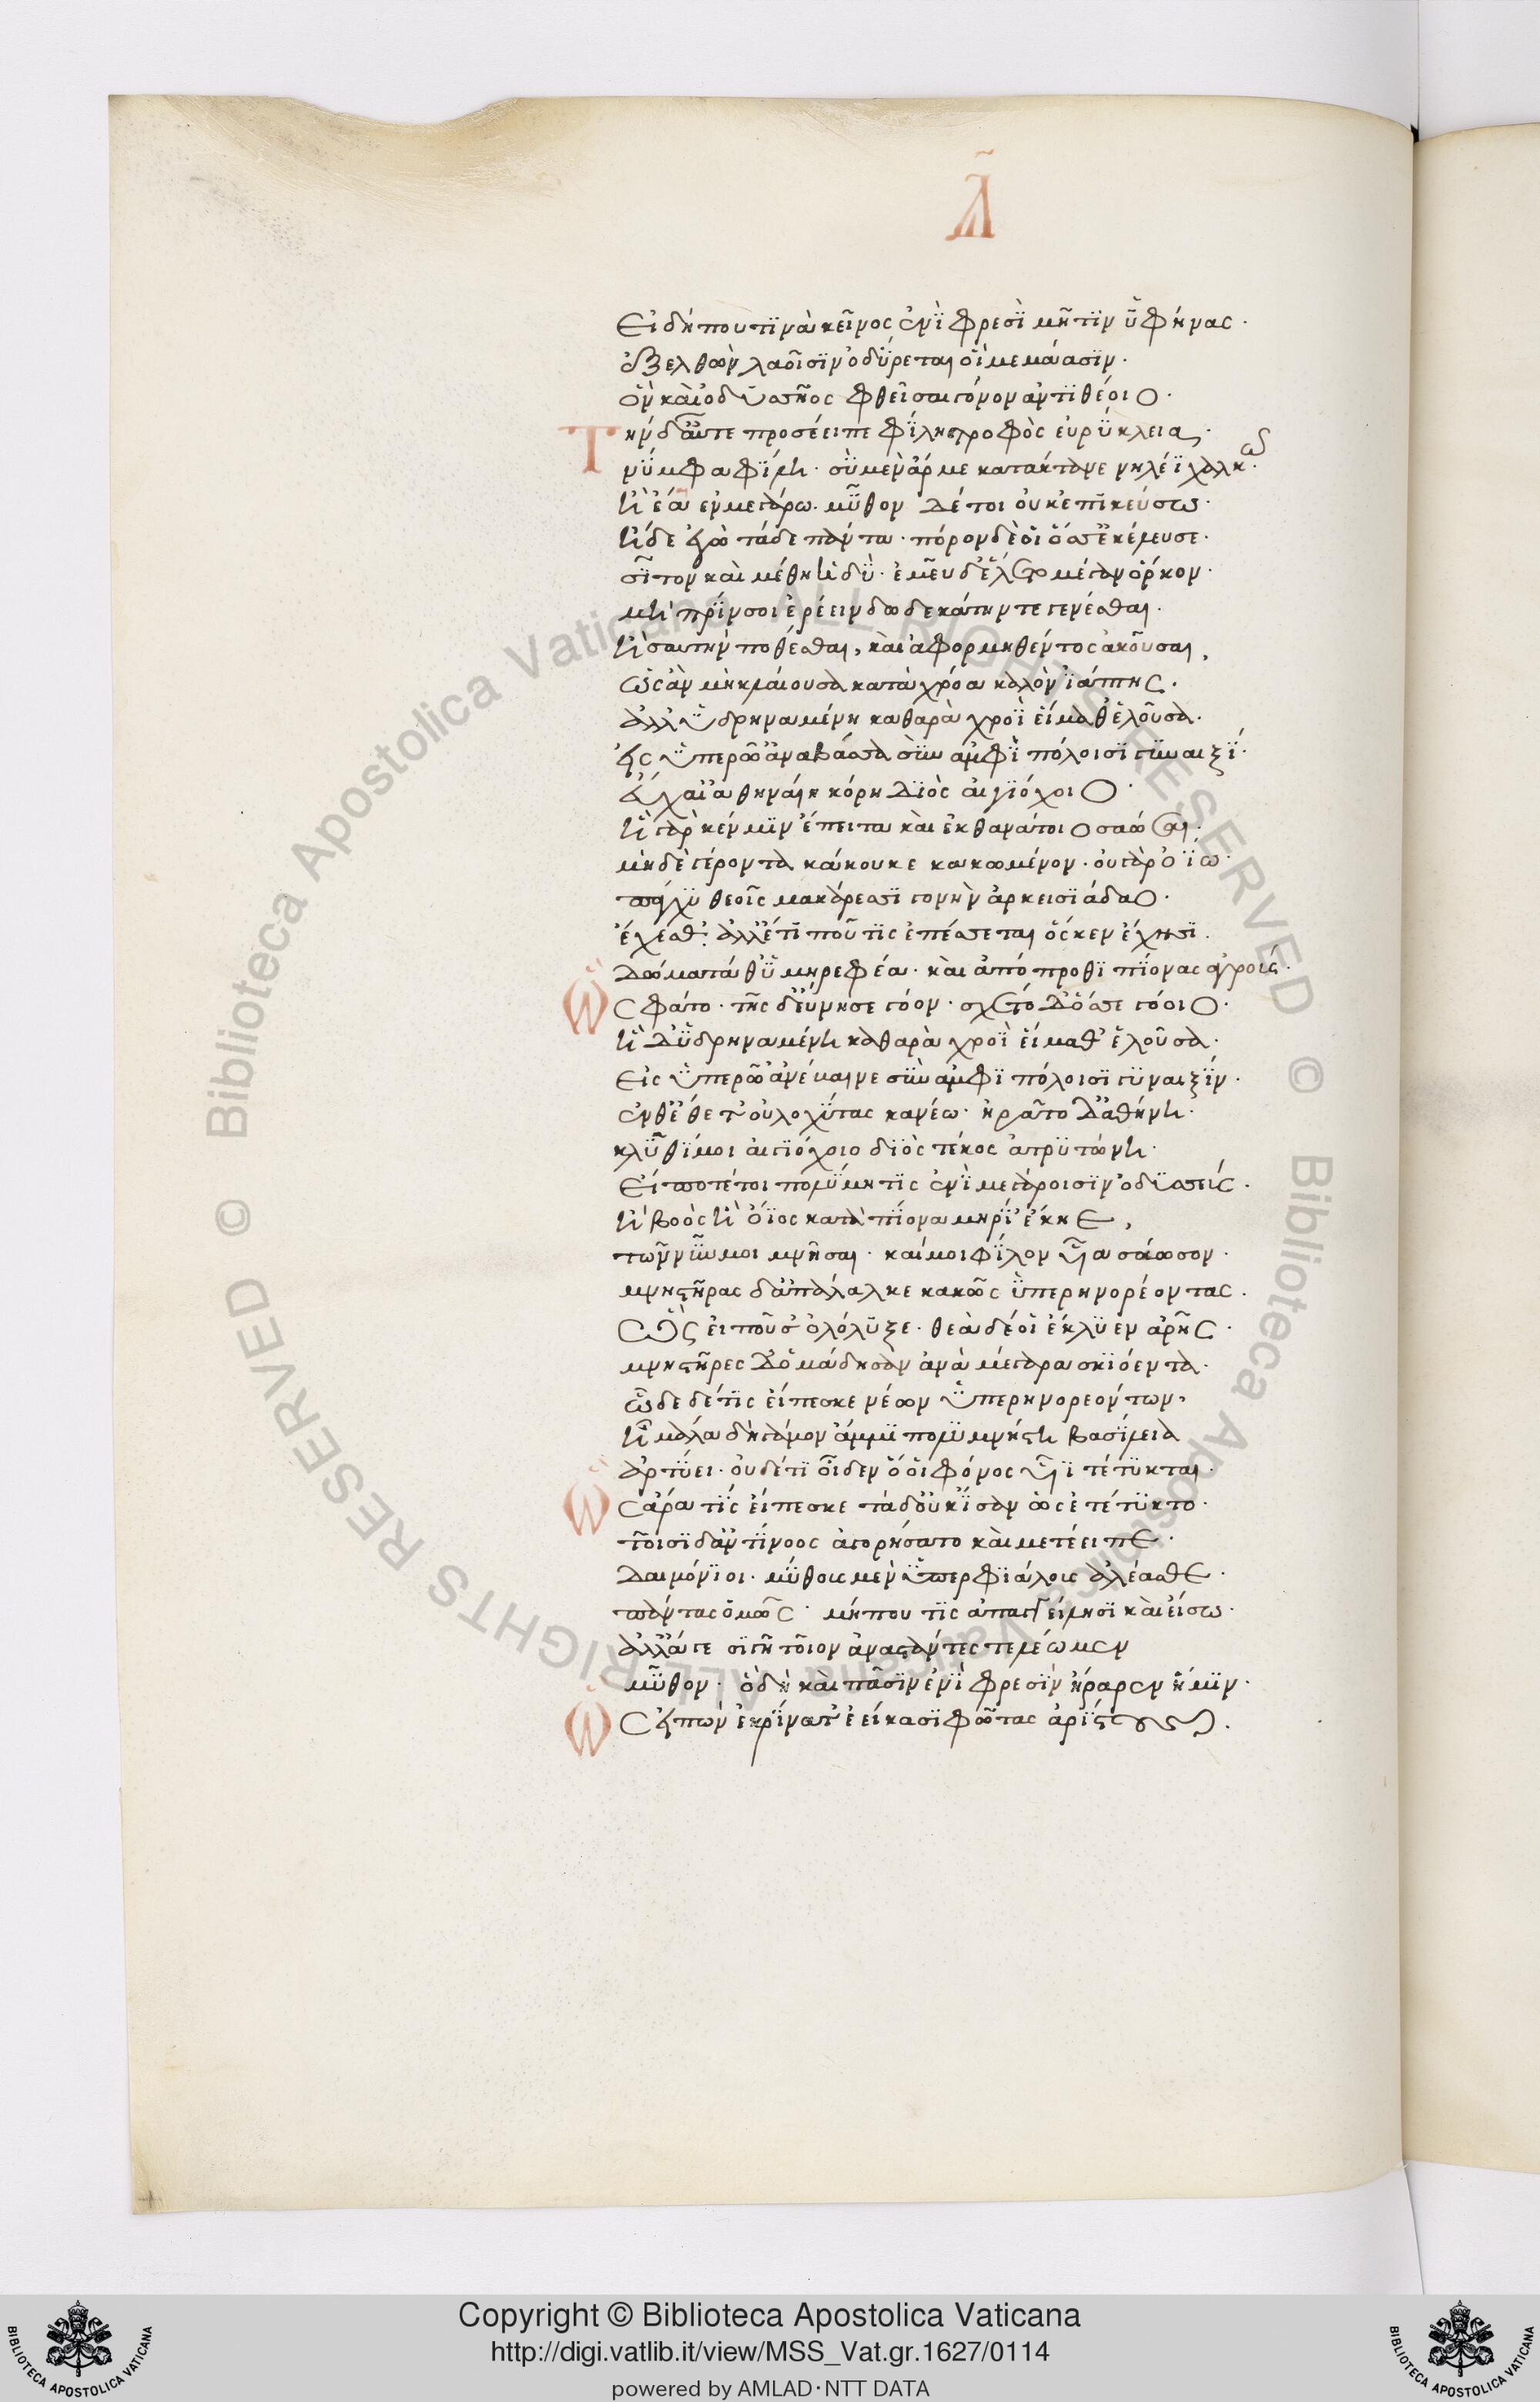 Λ̃
Εἰ δή που τϊνὰ κεῖνος ἐνϊ φρεσϊ μῆτϊν ὑφήνας ·
ἐξελθὼν λαοῖσϊν ὀδύρεται οἳ μεμάασϊν ·
ὃν καὶ ὀδυσσῆος φθεῖσαι γόνον ἀντϊθέοιο ·
Τὴν δ' αὖτε προσέειπε φΐλη τροφὸς εὐρύκλεια ·
νύμφα φΐλη · σὺ μὲν ἄρ με κατάκτανε νηλέϊ χαλκῶ ·
ἢ ἔα ἐν μεγάρω · μῦθον δέ τοι οὐκ ἐπικεύσω ·
ἤδε' ἐγὼ τάδε πάντα · πόρον δέ οἱ ὅσσ' ἐκέλευσε ·
σῖτον καὶ μέθη ἡδὺ · ἐμεῦ δ' ἕλετο μέγαν ὅρκον ·
μὴ πρΐν σοι ἐρέειν δωδεκάτην τε γενέσθαι ·
ἢ σ' αυτὴν ποθέσθαι, καὶ ἀφορμηθέντος ἀκοῦσαι,
ὡς ἂν μὴ κλαίουσα κατὰ χρόα καλὸν ϊάπτης ·
ἀλλ' ὑδρηναμένη καθαρὰ χροῒ εἵμαθ' ἑλοῦσα ·
εἰς ὑπερῶ' ἀναβᾶσα σὺν ἀμφϊπόλοισϊ γυναιξΐ ·
εὔχαι' ἀθηναίη κόρη Δϊὸς αἰγϊόχοιο ·
ἣ γὰρ κέν μϊν ἔπειτα καὶ ἐκ θανάτοιο σαώσαι ·
μηδὲ γέροντα κάκου κεκακωμένον · οὐ γὰρ ὀΐω ·
πάγχϋ θεοῖς μακάρεσσϊ γονὴν ἀρκεισϊάδαο ·
ἔχεσθ' · ἀλλ' ἔτϊ πού τϊς ἐπέσσεται ὅς κεν ἔχησϊ ·
Δώματα θ' ὑψηρεφέα · καὶ ἀπόπροθϊ πΐονας ἀγρούς ·
Ὣς φάτο · τῆς δ' εὔνησε γόον · σχέτο δ' ὄσσε γόοιο ·
ἣ δ' ὑδρηναμένη καθαρὰ χροῒ εἵμαθ' ἑλοῦσα ·
Εἰς ὑπερῶ' ἀνέβαινε σὺν ἀμφϊπόλοισϊ γϋναιξΐν ·
ἐν θ' ἔθετ' οὐλοχύτας κανέω · ἠρᾶτο δ' ἀθήνη ·
κλῦθΐ μοι αἰγϊόχοιο δϊὸς τέκος ἀτρϋτώνη ·
Εἴ ποτέ τοι πολύμητϊς ἐνϊ μεγάροισϊν ὀδϋσσεύς ·
ἢ βοὸς ἢ ὄϊος κατὰ πΐονα μηρΐ' ἔκηε,
τῶν νῦν μοι μνῆσαι · καί μοι φΐλον υἷα σάωσον ·
μνηστῆρας δ' ἀπάλαλκε κακῶς ὑπερηνορέοντας ·
Ὣς εἰποῦσ' ὀλόλυξε · θεὰ δέ οἱ ἔκλϋεν ἀρῆς ·
μνηστῆρες δ' ὁμάδησαν ἀνὰ μέγαρα σκϊόεντα ·
ὧδε δέ τϊς εἴπεσκε νέων ὑπερηνορεόντων ·
ἦ μάλα δὴ γάμον ἄμμϊ πολϋμνήστη βασΐλεια
ἀρτΰει · οὐδέ τϊ οἶδεν ὅ οἱ φόνος υἷϊ τέτϋκται ·
Ὣς ἄρα τϊς εἴπεσκε τὰ δ' οὐκ ἴσαν ὡς ἐτέτϋκτο ·
τοῖσϊ δ' ἀντΐνοος ἀγορήσατο καὶ μετέειπε ·
Δαιμόνϊοι · μύθους μὲν ὑπερφϊάλους ἀλέασθε ·
πάντας ὁμῶς · μή που τϊς ἀπαγγείλησϊ καὶ εἴσω ·
ἀλλ' ἄγε σϊγῆ τοῖον ἀναστάντες τελέωμεν
μῦθον · ὃ δὴ καὶ πᾶσϊν ἐνϊ φρεσϊν ἤραρεν ἡμϊν ·
Ὣς εἰπὼν ἐκρΐνατ' ἐείκοσϊ φῶτας ἀρΐστους ·
Copyright © Biblioteca Apostolica Vaticana
http://digi.vatlib.it/view/MSS_Vat.gr.1627/0114
powered by AMLAD·NTT DATA
© Biblioteca Apostolica Vaticana ALL RIGHTS RESERVED
© Biblioteca Apostolica Vaticana ALL RIGHTS RESERVED
BIBLIOTECA APOSTOLICA VATICANA
BIBLIOTECA APOSTOLICA VATICANA